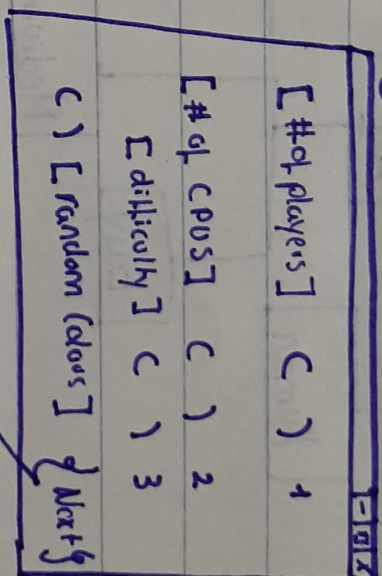 - □ x
[# of players] ( ) 1
[# of CPUS] ( ) 2
[difficulty] ( ) 3
( ) [random Colours] {Next}